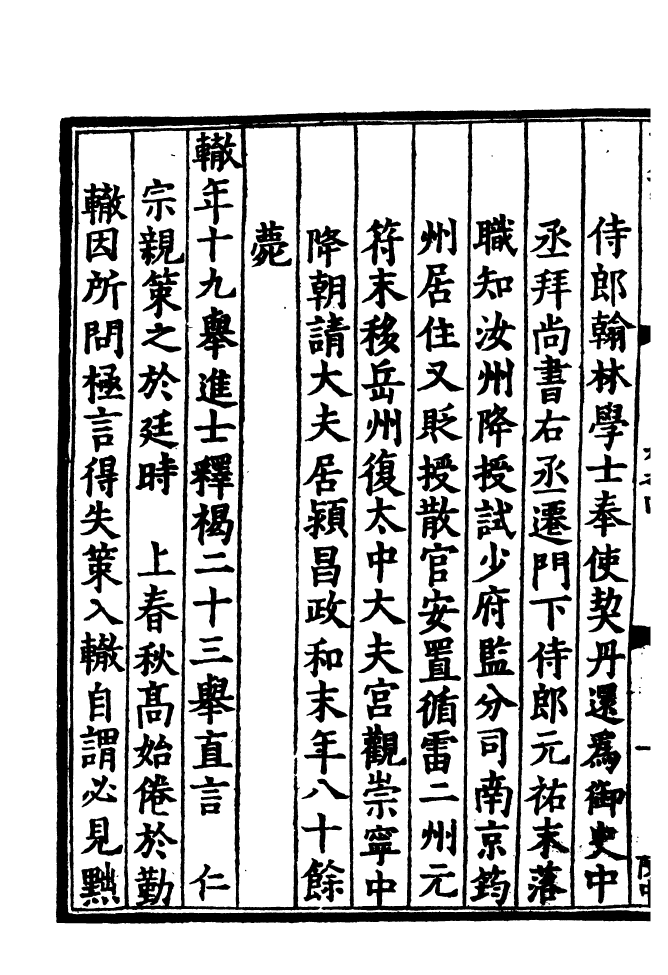 侍郎翰林學士奉使契丹還爲御史中
丞拜尚書右丞遷門下侍郎元祐末落
職知汝州降授試少府監分司南京筠
州居住又貶授散官安置循雷二州元
符末移岳州復太中大夫宮觀崇寧中
降朝請大夫居潁昌政和末年八十餘
薨
轍年十九舉進士釋褐二十三舉直言　仁
宗親策之於廷時　上春秋高始倦於勤
轍因所問極言得失策入轍自謂必見黜